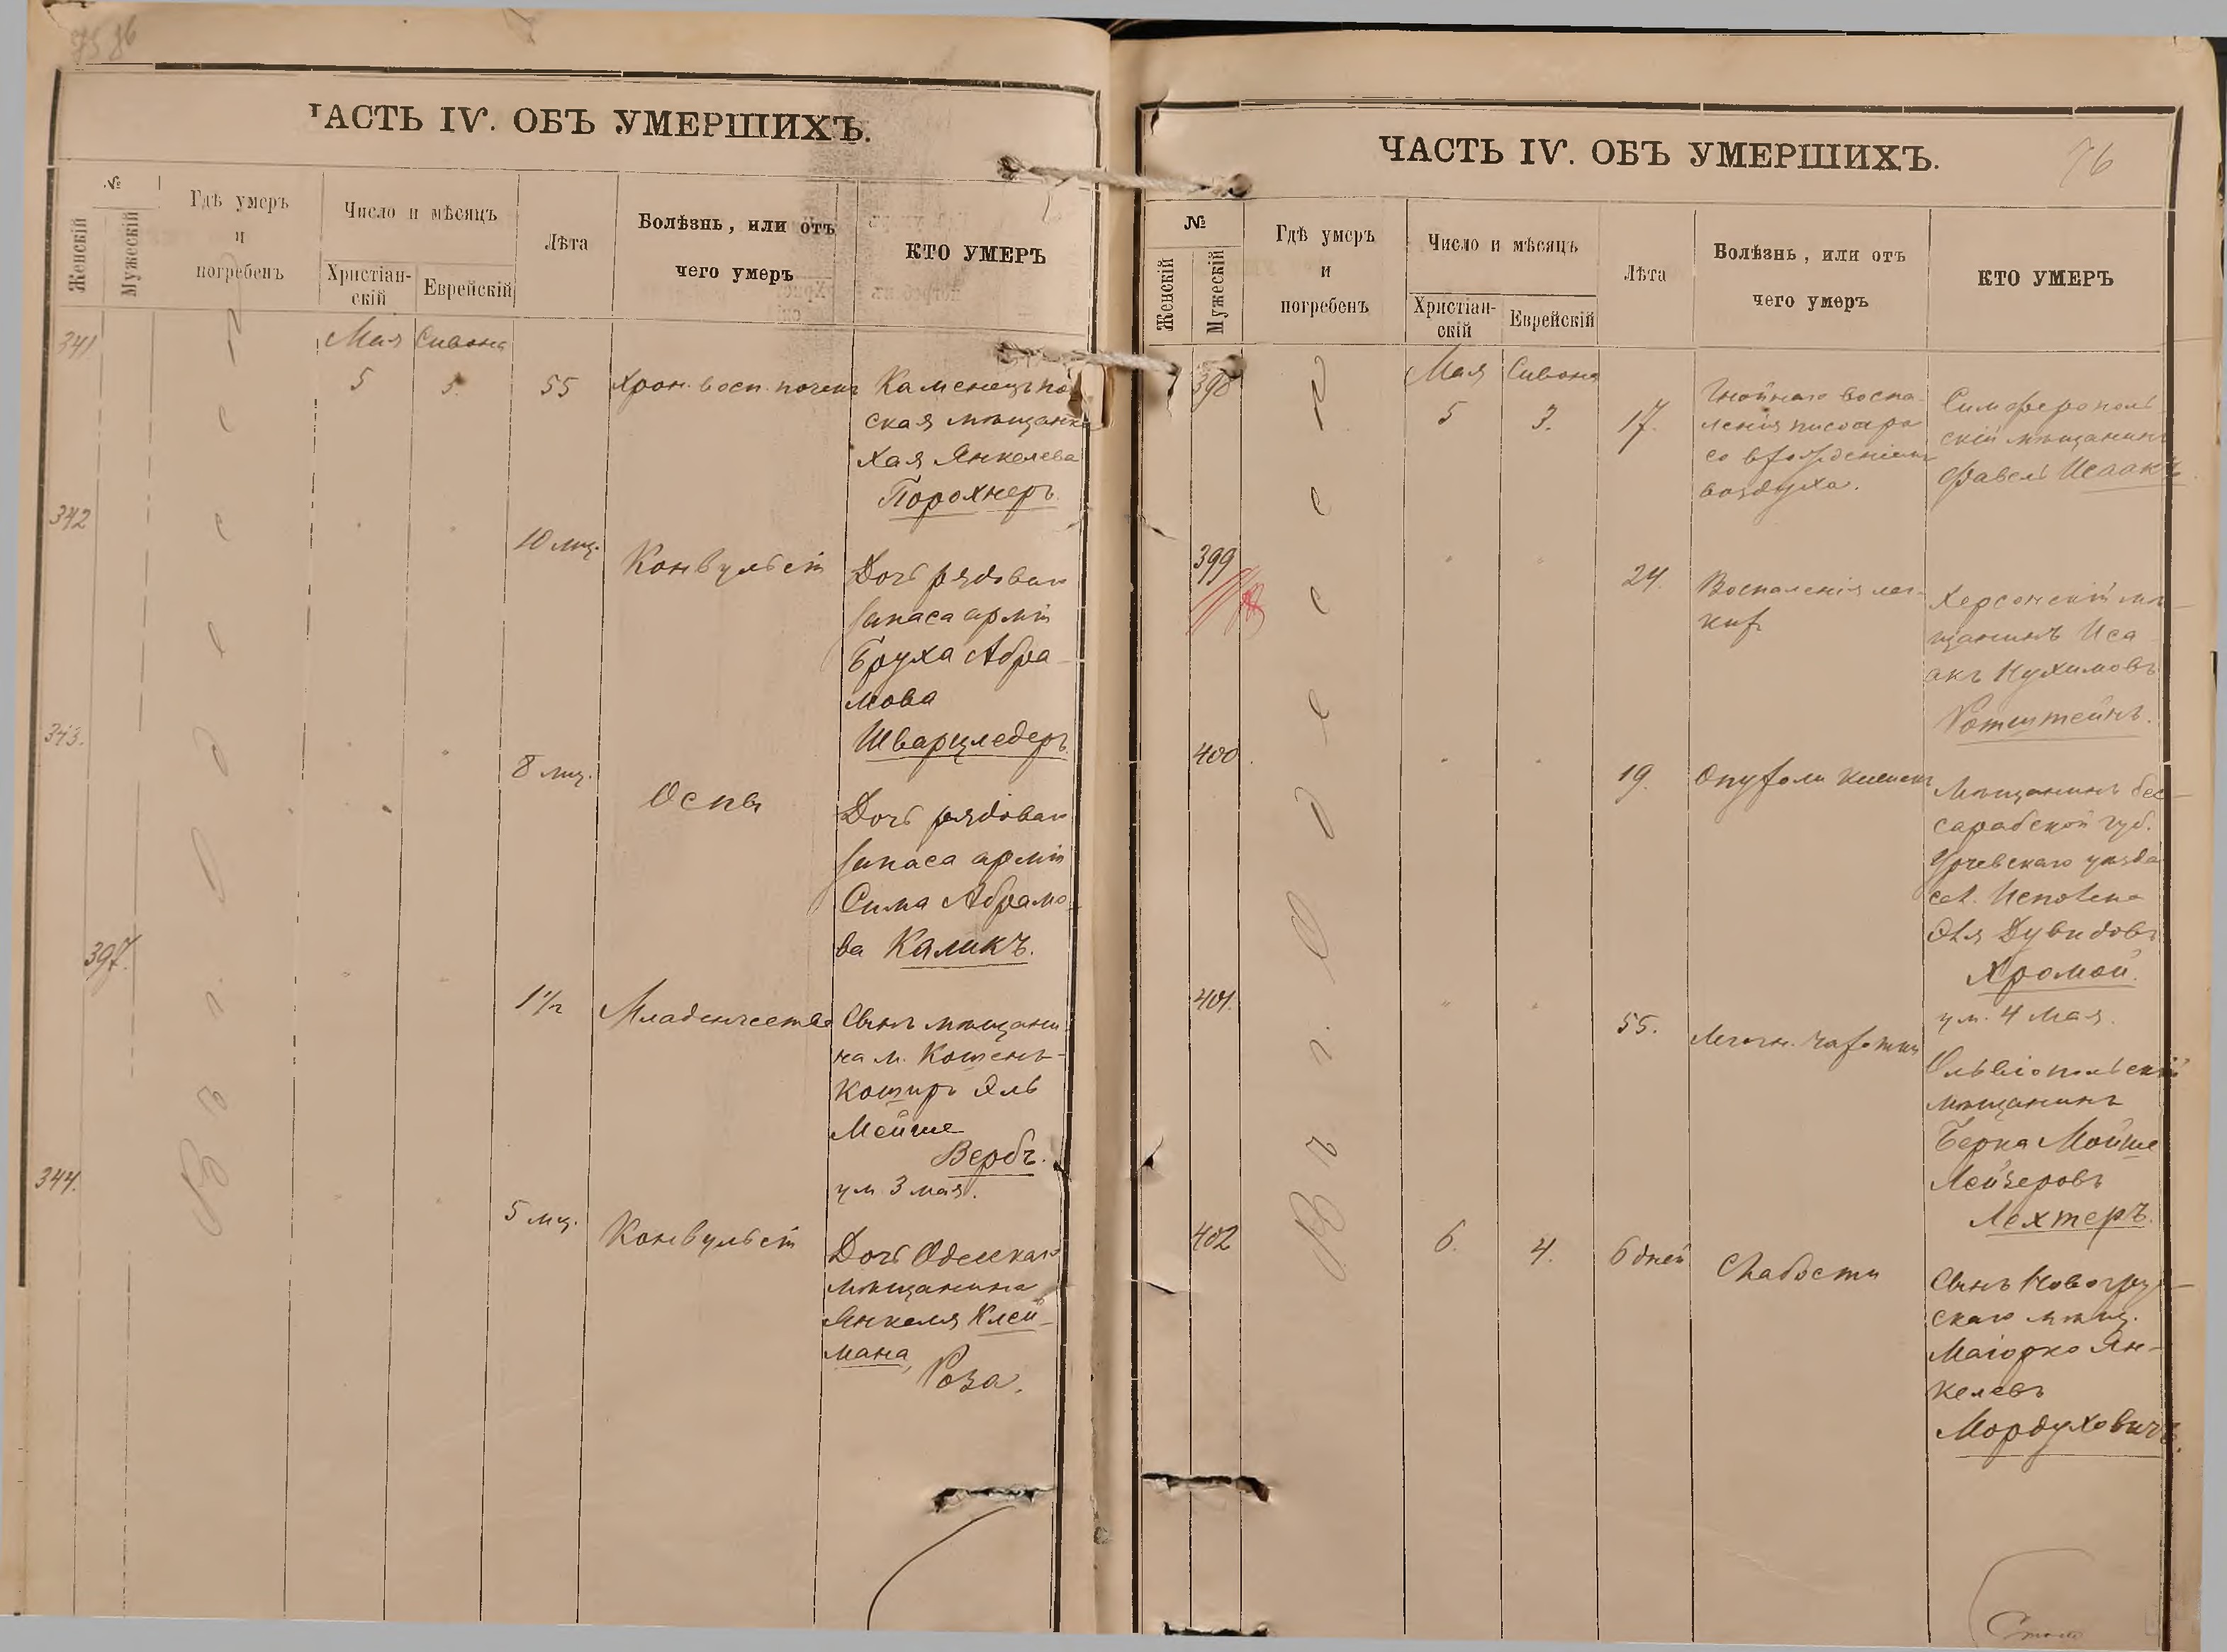 75 76
ЧАСТЬ IV. ОБЪ УМЕРШИХЪ.
№
Женскій
Мужескій
Гдѣ умеръ
и
погребенъ
Число и мѣсяцъ
Христіан-
скій
Еврейскій
Лѣта
Болѣзнь, или отъ
чего умеръ
КТО УМЕРЪ
Въ г. Одессѣ
341
Мая
5
Сивона
3.
55
Хрон. восп. почекъ
Каменецъ по
ская мѣщанка
Хая Янкелева
Порохнеръ.
342
10 мц.
Конвульсій
Дочь рядоваго
запаса арміи
Бруха Абра-
мова
Шварцледеръ.
343.
8 мц.
Оспы
Дочь рядоваго
запаса арміи
Сима Абрамо-
ва Каликъ.
397.
1 1/2
Младенчества
Сынъ мѣщани
на м.
Коширъ Эль
Мейше
Вербъ.
ум. 3 мая.
344.
5 мц.
Конвульсій
Дочь Одесскаго
мѣщанина
Янкеля Клей-
мана,
Роза.
ЧАСТЬ IV. ОБЪ УМЕРШИХЪ.
76
№
Женскій
Мужескій
Гдѣ умеръ
и
погребенъ
Число и мѣсяцъ
Христіан-
скій
Еврейскій
Лѣта
Болѣзнь, или отъ
чего умеръ
КТО УМЕРЪ
Въ г. Одессѣ
398
Мая
5
Сивона
3.
17.
Гнойнаго воспа-
ленія
со
воздуха.
Симферополь-
скій мѣщанинъ
Фавель Исаакъ
399
24.
Воспаленія лег-
кихъ
Херсонскій мѣ-
щанинъ Иса-
акъ Нухимовъ
Ротштейнъ.
400
19.
Опухоли кишекъ
Мѣщанинъ бес-
сарабской губ.
уѣзда
Дувидовъ
Хромой.
ум. 4 мая.
401.
55.
Легочн. чахотки
Ольвіопольскій
мѣщанинъ
Берка Мойше
Лейзеровъ
Лехтеръ.
402
6.
4.
6 дней
Слабости
Сынъ Новогруд-
скаго мѣщ.
Маіорко Ян-
келевъ
Мордуховичъ.